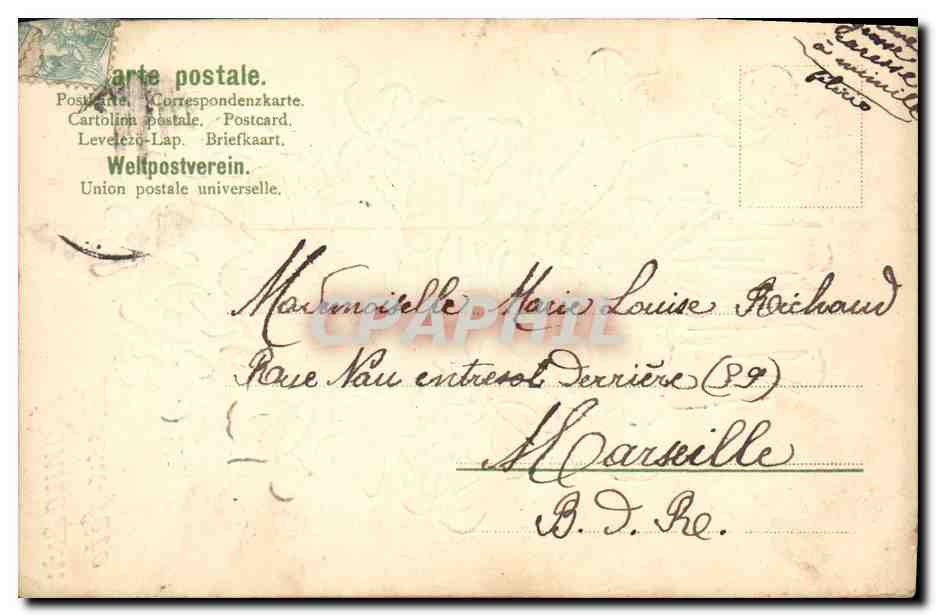 Carte postale.
Postkarte. Correspondenzkarte.
Cartolina postale. Postcard.
Levelező-Lap. Briefkaart.
Weltpostverein.
Union postale universelle.
grosse
caresse
à mimille
Mademoiselle Marie Louise Richaud
CPAPHIL
Rue Nau entresol derrière (89)
Marseille
B. d. R.